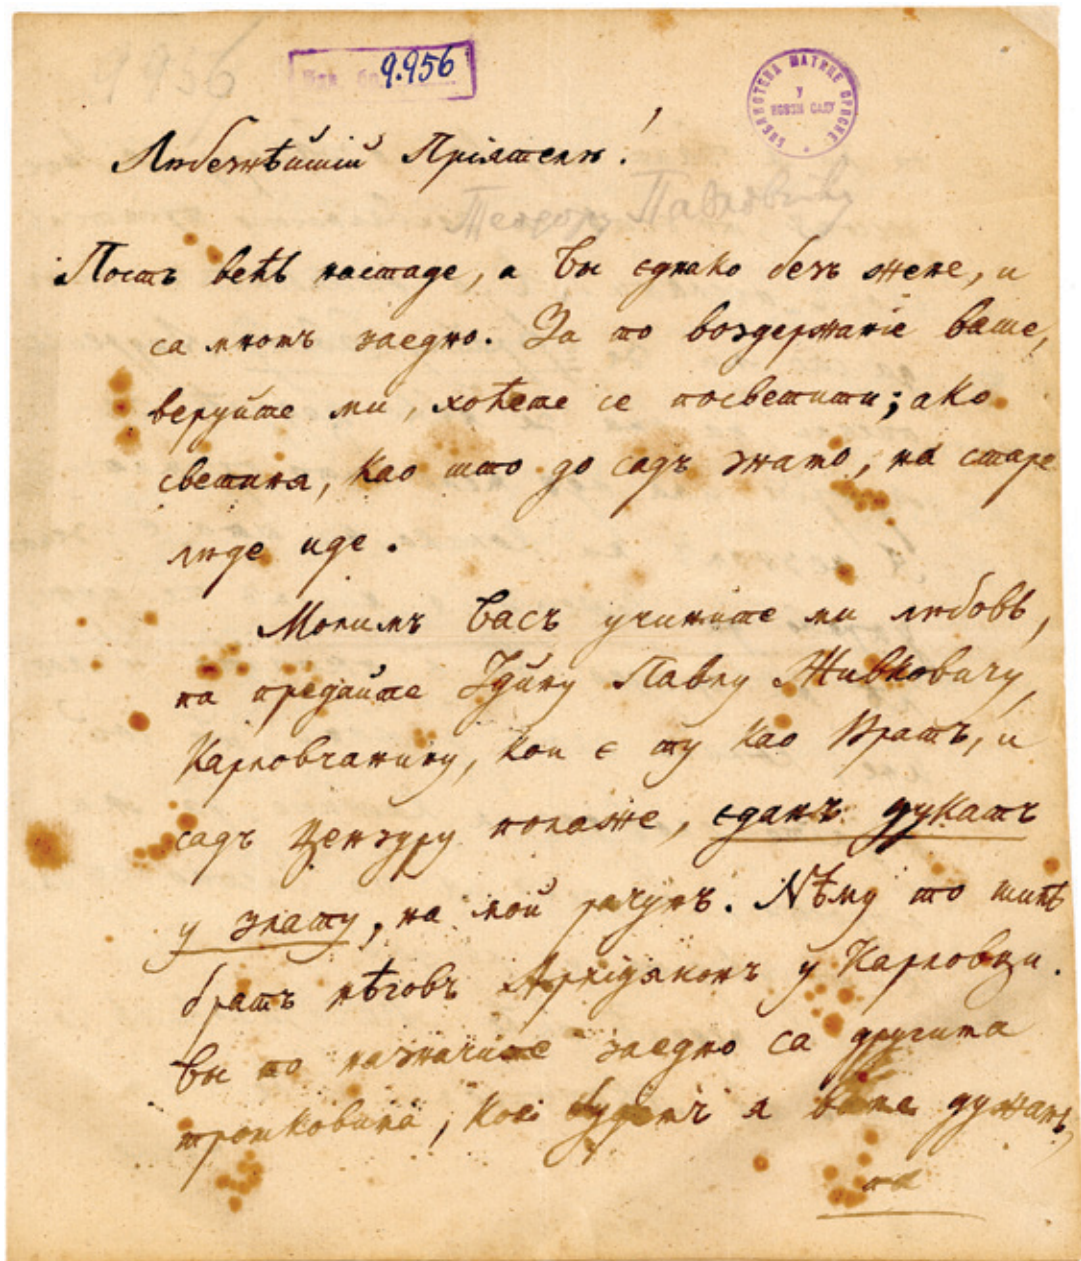 9.956
9956
БИБЛИОТЕКА МАТИЦЕ СРПСКЕ
У
НОВОМ САДУ
Любезнѣйшій Пріятелю!
Теодору Павловићу
Постъ већъ настаде, а Вы єднако безъ жене, и
са мномъ заедно. За то воздержаніе ваше,
веруйте ми, хоћете се посветити; ако
светиня, као што до садъ знамо, на старе
люде иде.
Молимъ Васъ учините ми любовь,
па предайте Павлу Живковичу,
Карловчанину, кои є ту као Вратъ, и
садъ Цензуру полаже, єданъ дукатъ
у злату, на мой рачунъ. Нѣму то шлѣ
братъ нѣговъ Архідяконъ у Карловци.
Вы то назначите заедно са другима
трошковима, кое будемъ я вама дужанъ,
па